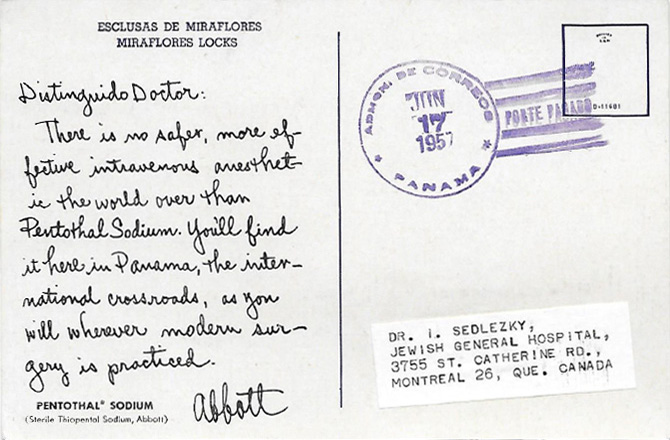 ESCLUSAS DE MIRAFLORES
MIRAFLORES LOCKS
Distinguido Doctor:
There is no safer, more ef-
fective intravenous anesthet-
ic the world over than
Pentothal Sodium. You'll find
it here in Panama, the inter-
national crossroads, as you
will wherever modern sur-
gery is practiced.
Abbott
PENTOTHAL® SODIUM
(Sterile Thiopental Sodium, Abbott)
ADMON. DE CORREOS
JUN
17
1957
PANAMA
PORTE PAGADO
D-11601
DR. I. SEDLEZKY,
JEWISH GENERAL HOSPITAL,
3755 ST. CATHERINE RD.,
MONTREAL 26, QUE. CANADA